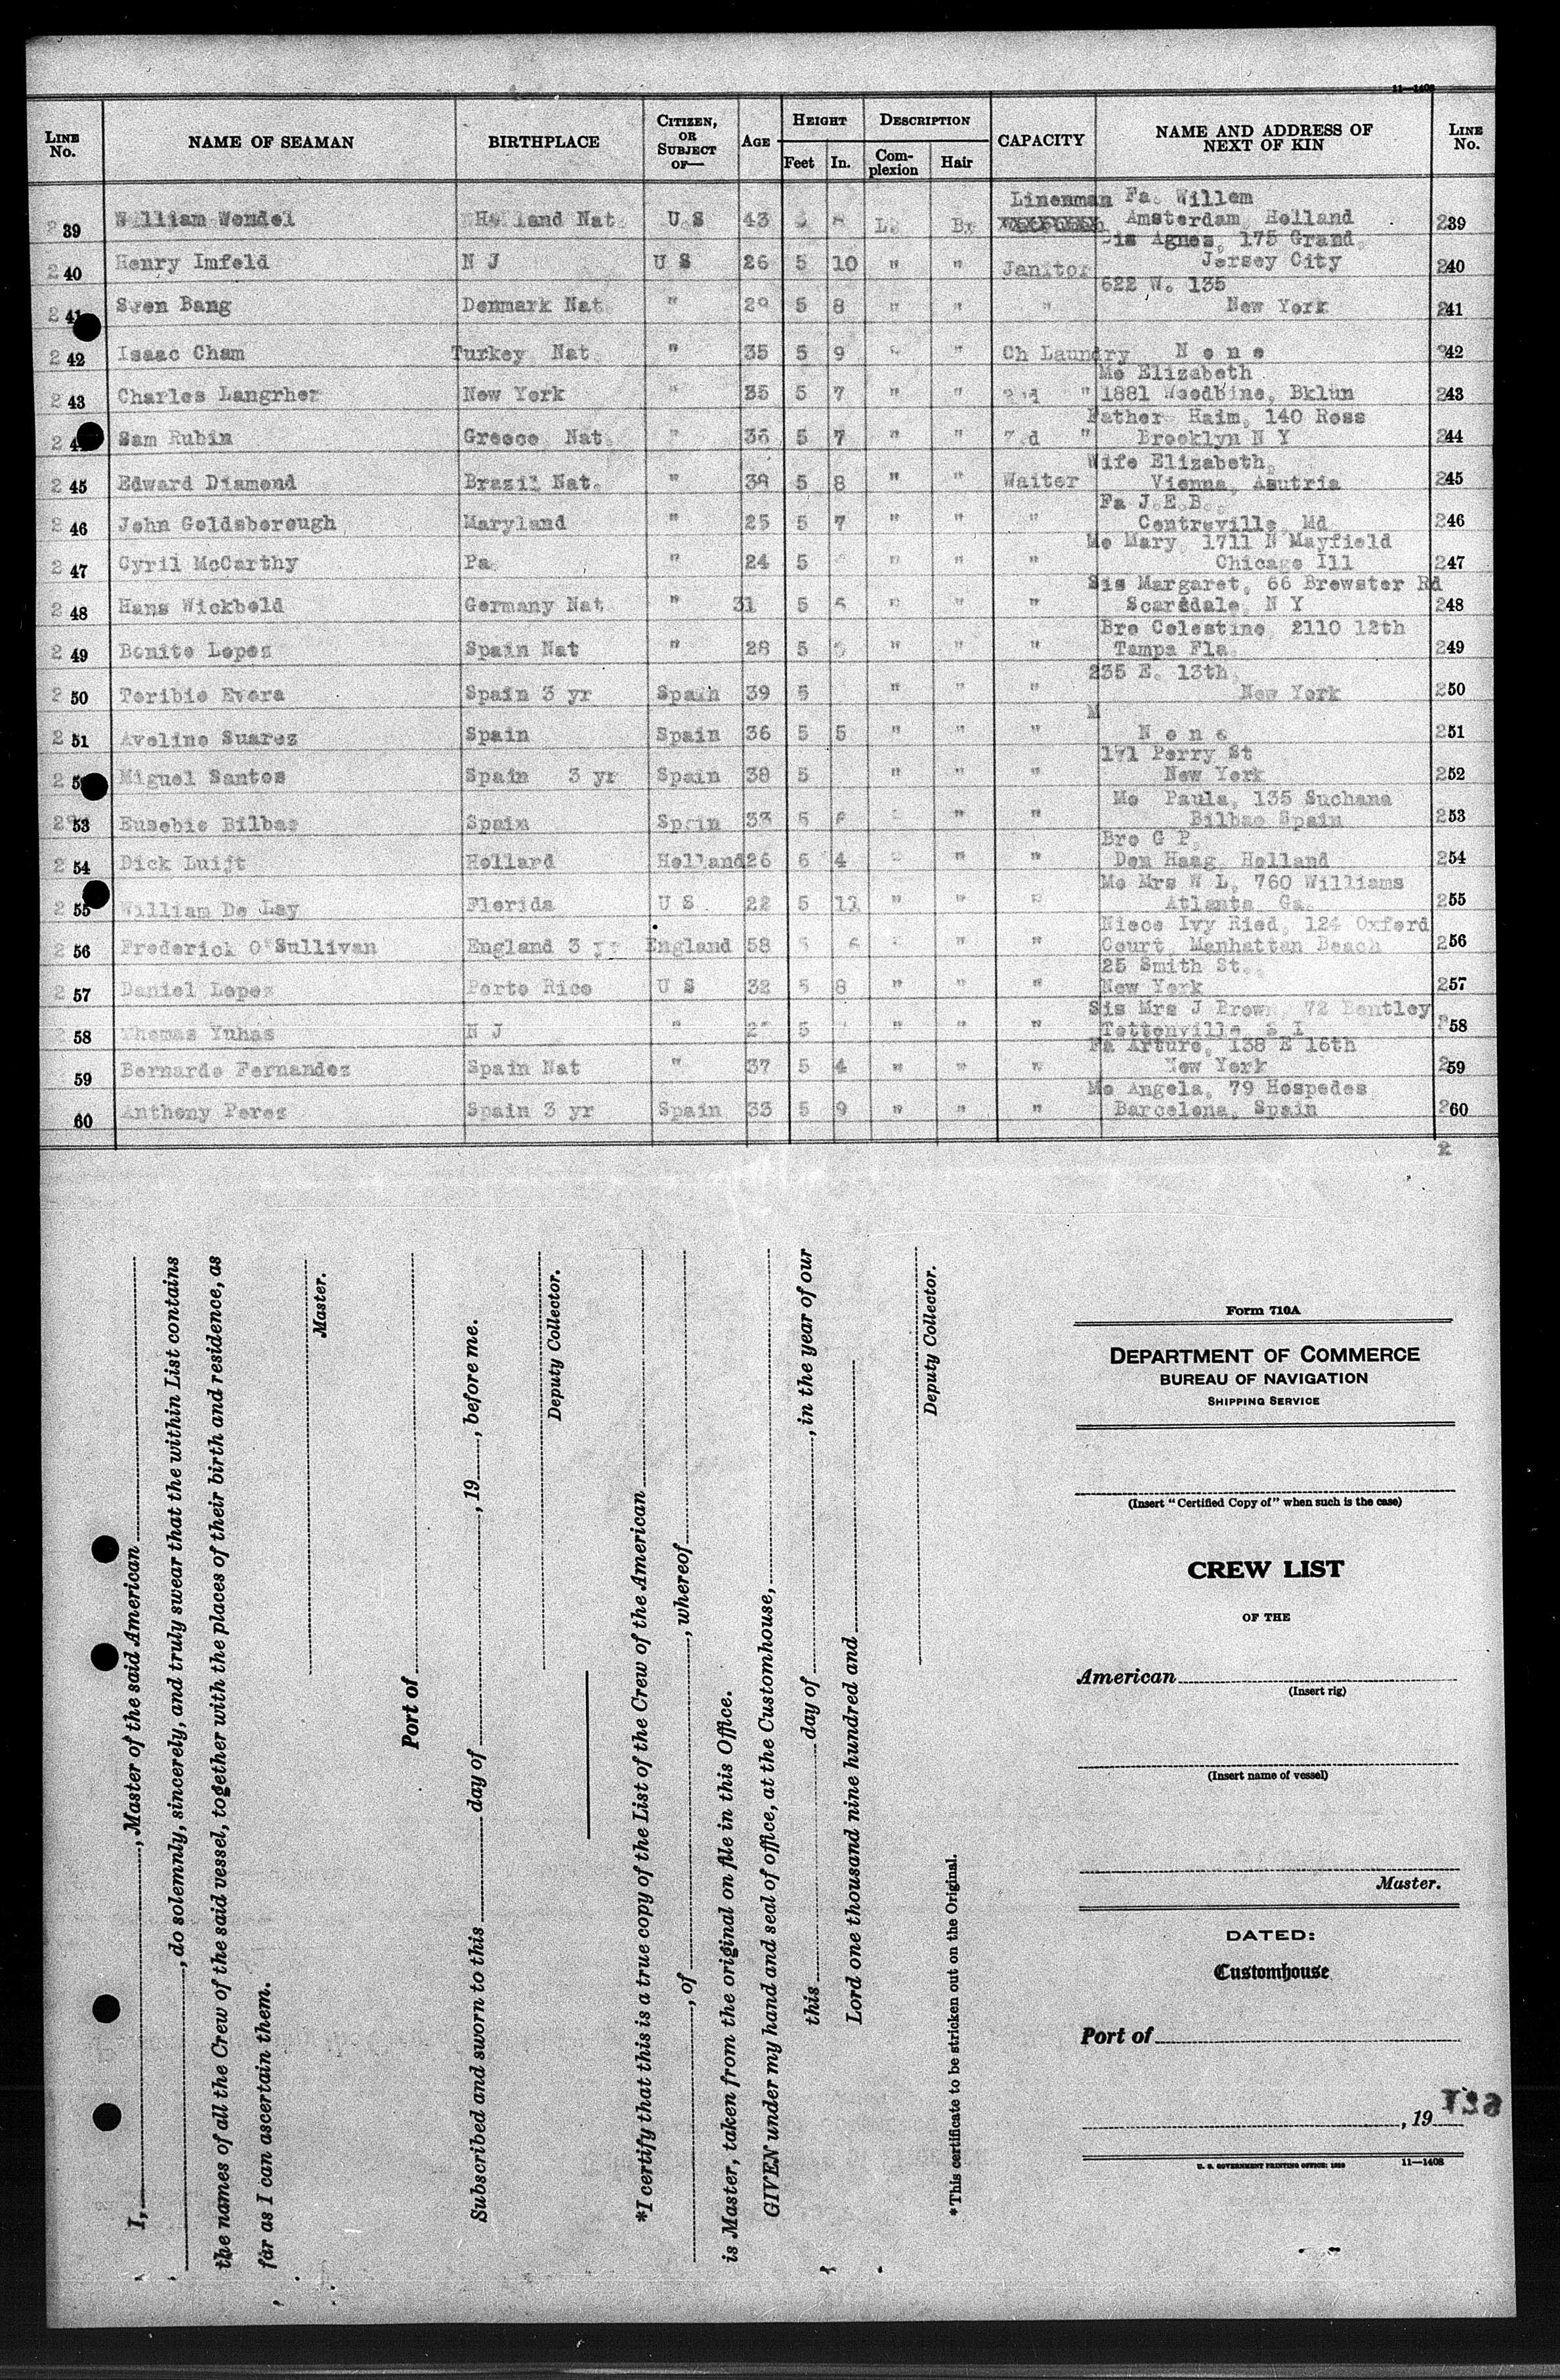 11—1408
LINE No. NAME OF SEAMAN BIRTHPLACE CITIZEN, OR SUBJECT OF— AGE HEIGHT Feet In. DESCRIPTION Complexion Hair CAPACITY NAME AND ADDRESS OF NEXT OF KIN LINE No.
Linenman Fa. Willem
239 William Wendel Holland Nat. U S 43 Br Amsterdam, Holland 239
Sis Agnes, 175 Grand,
240 Henry Imfeld N J U S 26 5 10 " " Janitor Jersey City 240
622 W. 135
241 Sven Bang Denmark Nat. " 29 5 8 " " " New York 241
242 Isaac Cham Turkey Nat. " 35 5 9 " " Ch Laundry N o n e 242
Mo Elizabeth
243 Charles Langrher New York " 35 5 7 " " 2nd " 1881 Woodbine, Bklun 243
Father Haim, 140 Ross
24 Sam Rubin Greece Nat. " 36 5 7 " " " Brooklyn N Y 244
Wife Elizabeth,
245 Edward Diamond Brazil Nat. " 39 5 8 " " Waiter Vienna, Asutria 245
Fa J.E.B.,
246 John Goldsborough Maryland " 25 5 7 " " " Centreville, Md 246
Mo Mary, 1711 N Mayfield
247 Cyril McCarthy Pa. " 24 5 " " " Chicago Ill 247
Sis Margaret, 66 Brewster Rd
248 Hans Wickbold Germany Nat. " 31 5 " " " Scarsdale, N Y 248
Bro Celestino, 2110 12th
249 Bonito Lopez Spain Nat " 28 5 " " " Tampa Fla. 249
235 E. 13th,
250 Toribio Evora Spain 3 yr Spain 39 5 " " " New York 250
M
251 Avelino Suarez Spain Spain 36 5 5 " " " N o n e 251
171 Perry St
25 Miguel Santos Spain 3 yr Spain 38 5 " " " New York 252
Mo Paula, 135 Suchana
253 Eusebio Bilbao Spain Spain 33 5 6 " " " Bilbao Spain 253
Bro G P,
254 Dick Luijt Holland Holland 26 6 4 " " " Den Haag, Holland 254
Mo Mrs W L, 760 Williams
255 William De Lay Florida U S 22 5 11 " " " Atlanta, Ga. 255
Niece Ivy Ried, 124 Oxford
256 Frederick O'Sullivan England 3 yr England 58 5 6 " " " Court, Manhattan Beach 256
25 Smith St.,
257 Daniel Lopez Porto Rico U S 32 5 8 " " " New York 257
Sis Mrs J Brown, 72 Bentley
58 Thomas Yuhas N J " 5 " " " Tottenville, S I 258
Fa Arturo, 138 E 16th
59 Bernardo Fernandez Spain Nat " 37 5 4 " " " New York 259
Mo Angela, 79 Hospedes
60 Anthony Perez Spain 3 yr Spain 33 5 9 " " " Barcelona, Spain 260
2
I, , Master of the said American
, do solemnly, sincerely, and truly swear that the within List contains
the names of all the Crew of the said vessel, together with the places of their birth and residence, as
far as I can ascertain them.
Master.
Port of
Subscribed and sworn to this day of , 19 , before me.
Deputy Collector.
*I certify that this is a true copy of the List of the Crew of the American
, of , whereof
is Master, taken from the original on file in this Office.
GIVEN under my hand and seal of office, at the Customhouse,
this day of , in the year of our
Lord one thousand nine hundred and
Deputy Collector.
*This certificate to be stricken out on the Original.
Form 710A
DEPARTMENT OF COMMERCE
BUREAU OF NAVIGATION
SHIPPING SERVICE
(Insert "Certified Copy of" when such is the case)
CREW LIST
OF THE
American
(Insert rig)
(Insert name of vessel)
Master.
DATED:
Customhouse
Port of
, 19
U. S. GOVERNMENT PRINTING OFFICE: 1929 11—1408